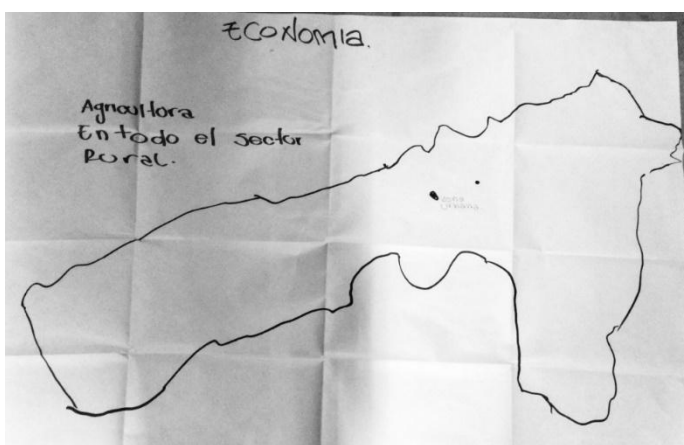 ECONOMIA.
Agricultora
En todo el sector
Rural.
Zona
Urbana